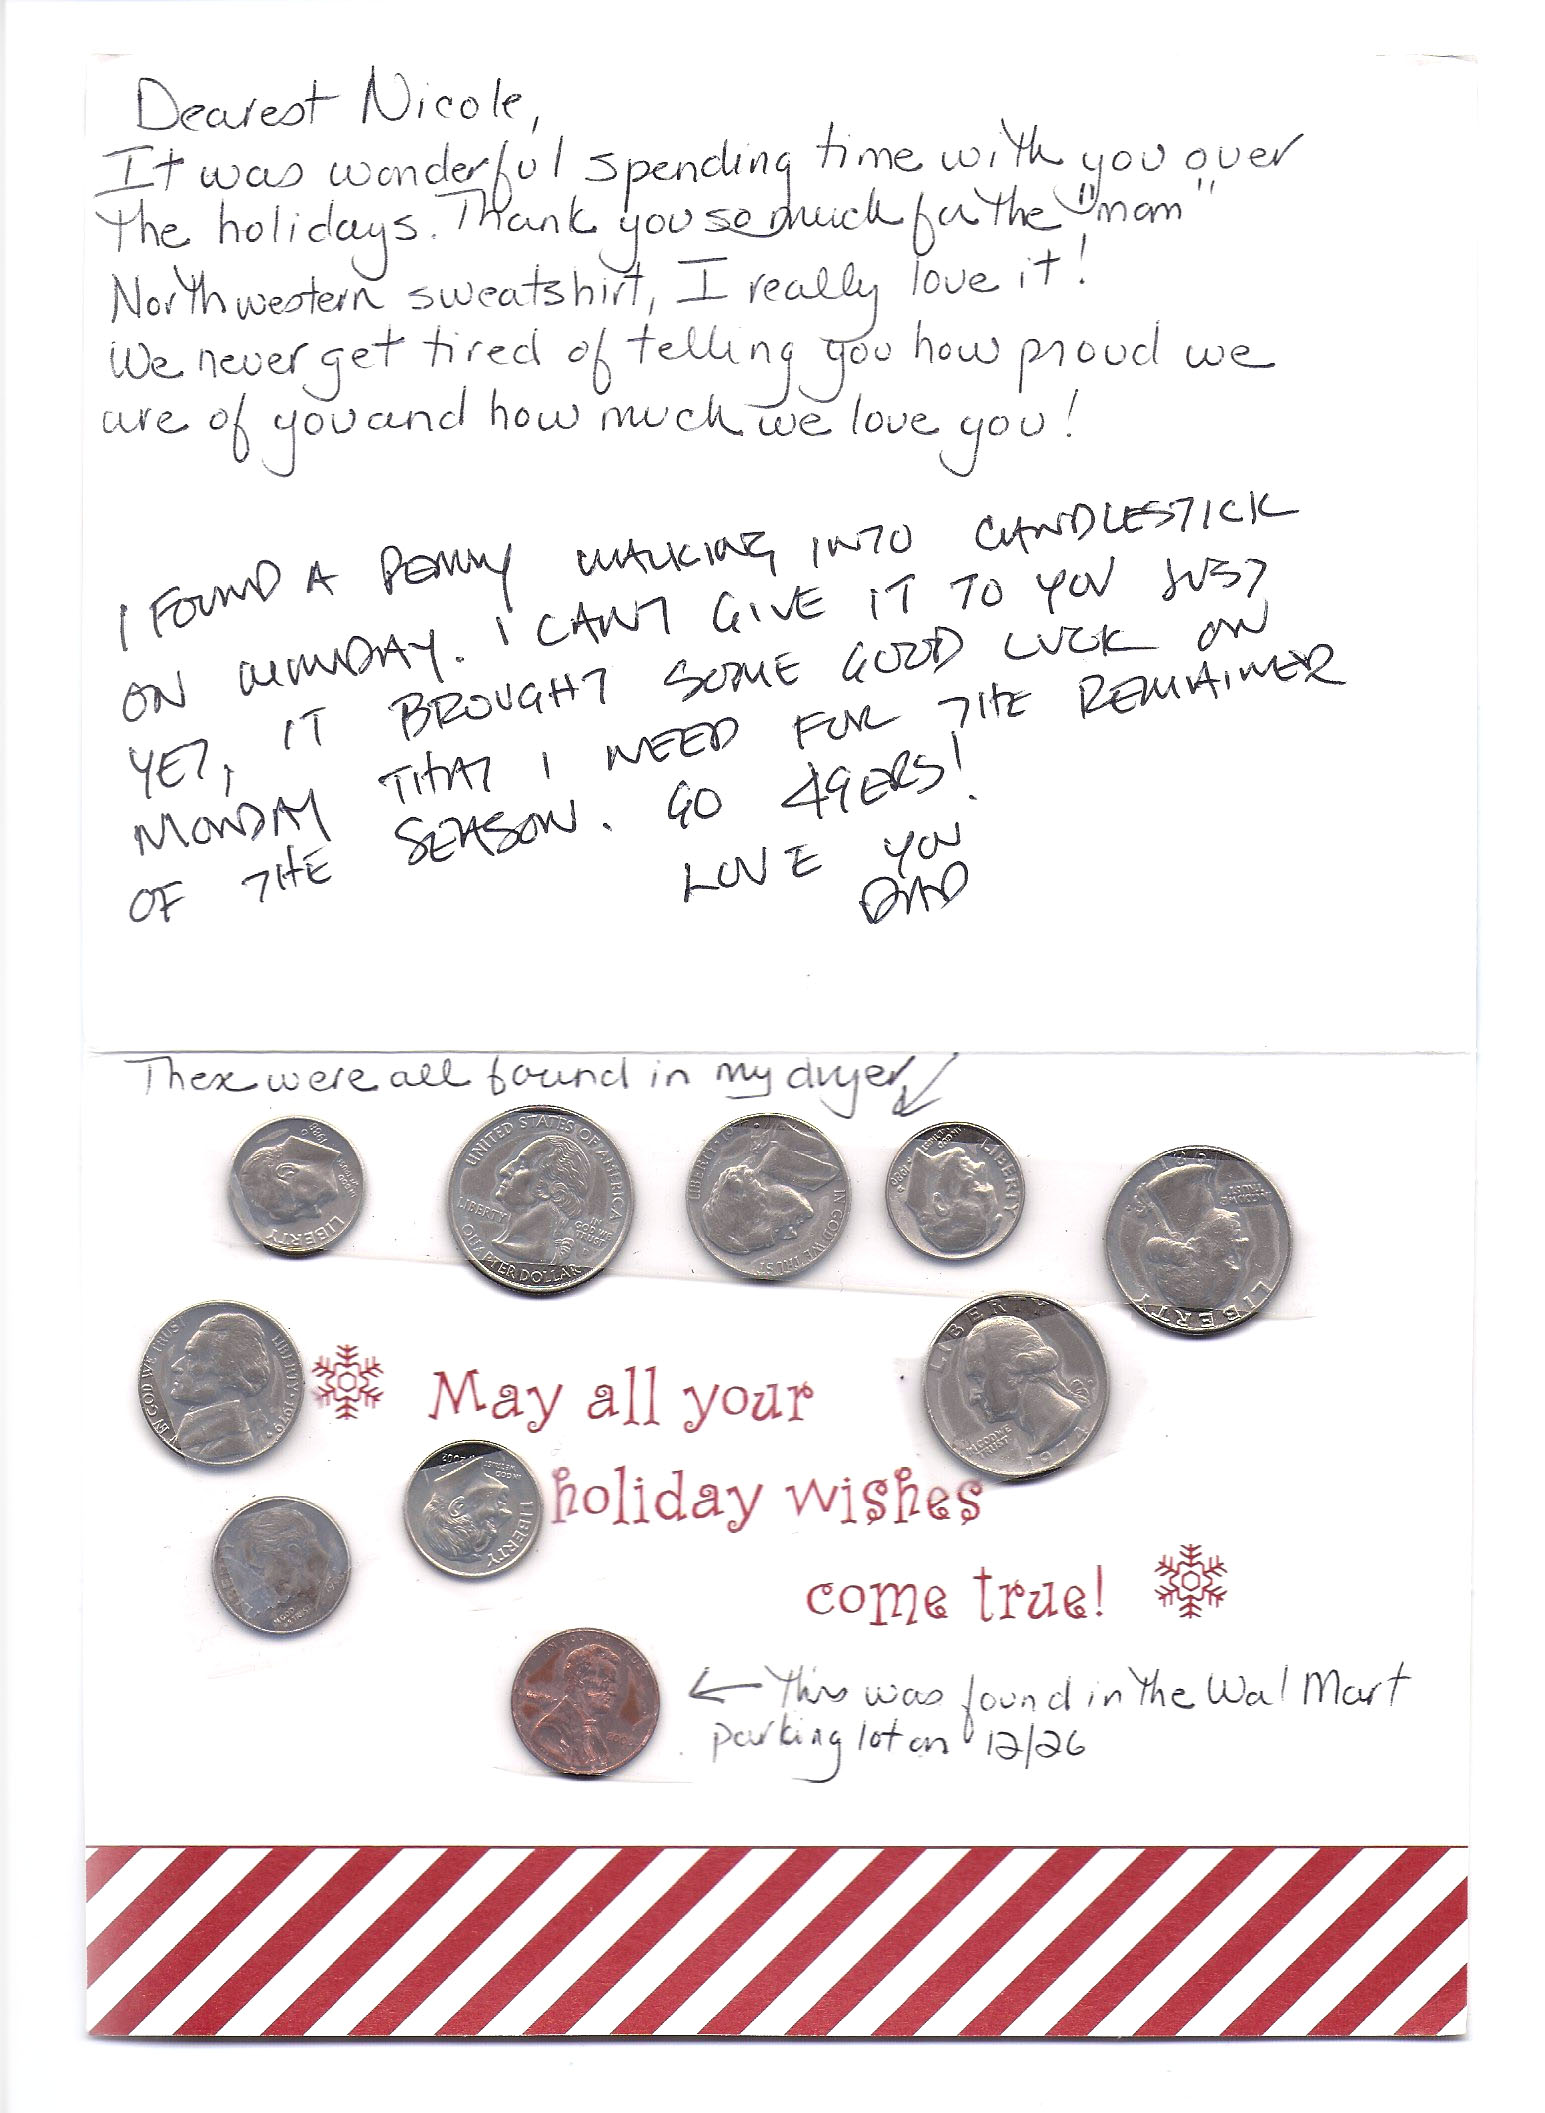 Dearest Nicole,
It was wonderful spending time with you over
the holidays. Thank you so much for the "mom"
Northwestern sweatshirt, I really love it!
We never get tired of telling you how proud we
are of you and how much we love you!
I FOUND A PENNY WALKING INTO CANDLESTICK
ON MONDAY. I CAN'T GIVE IT TO YOU JUST
YET, IT BROUGHT SOME GOOD LUCK ON
MONDAY THAT I NEED FOR THE REMAINER
OF THE SEASON. GO 49ERS!
LOVE YOU
DAD
These were all found in my dryer
1988 IN GOD WE TRUST LIBERTY
UNITED STATES OF AMERICA LIBERTY IN GOD WE TRUST QUARTER DOLLAR
LIBERTY IN GOD WE TRUST
LIBERTY IN GOD WE TRUST
LIBERTY IN GOD WE TRUST
IN GOD WE TRUST LIBERTY 1979
LIBERTY IN GOD WE TRUST 1974
May all your
holiday wishes
come true!
LIBERTY IN GOD WE TRUST 2002
LIBERTY IN GOD WE TRUST
IN GOD WE TRUST
This was found in the Wal Mart
parking lot on 12/26